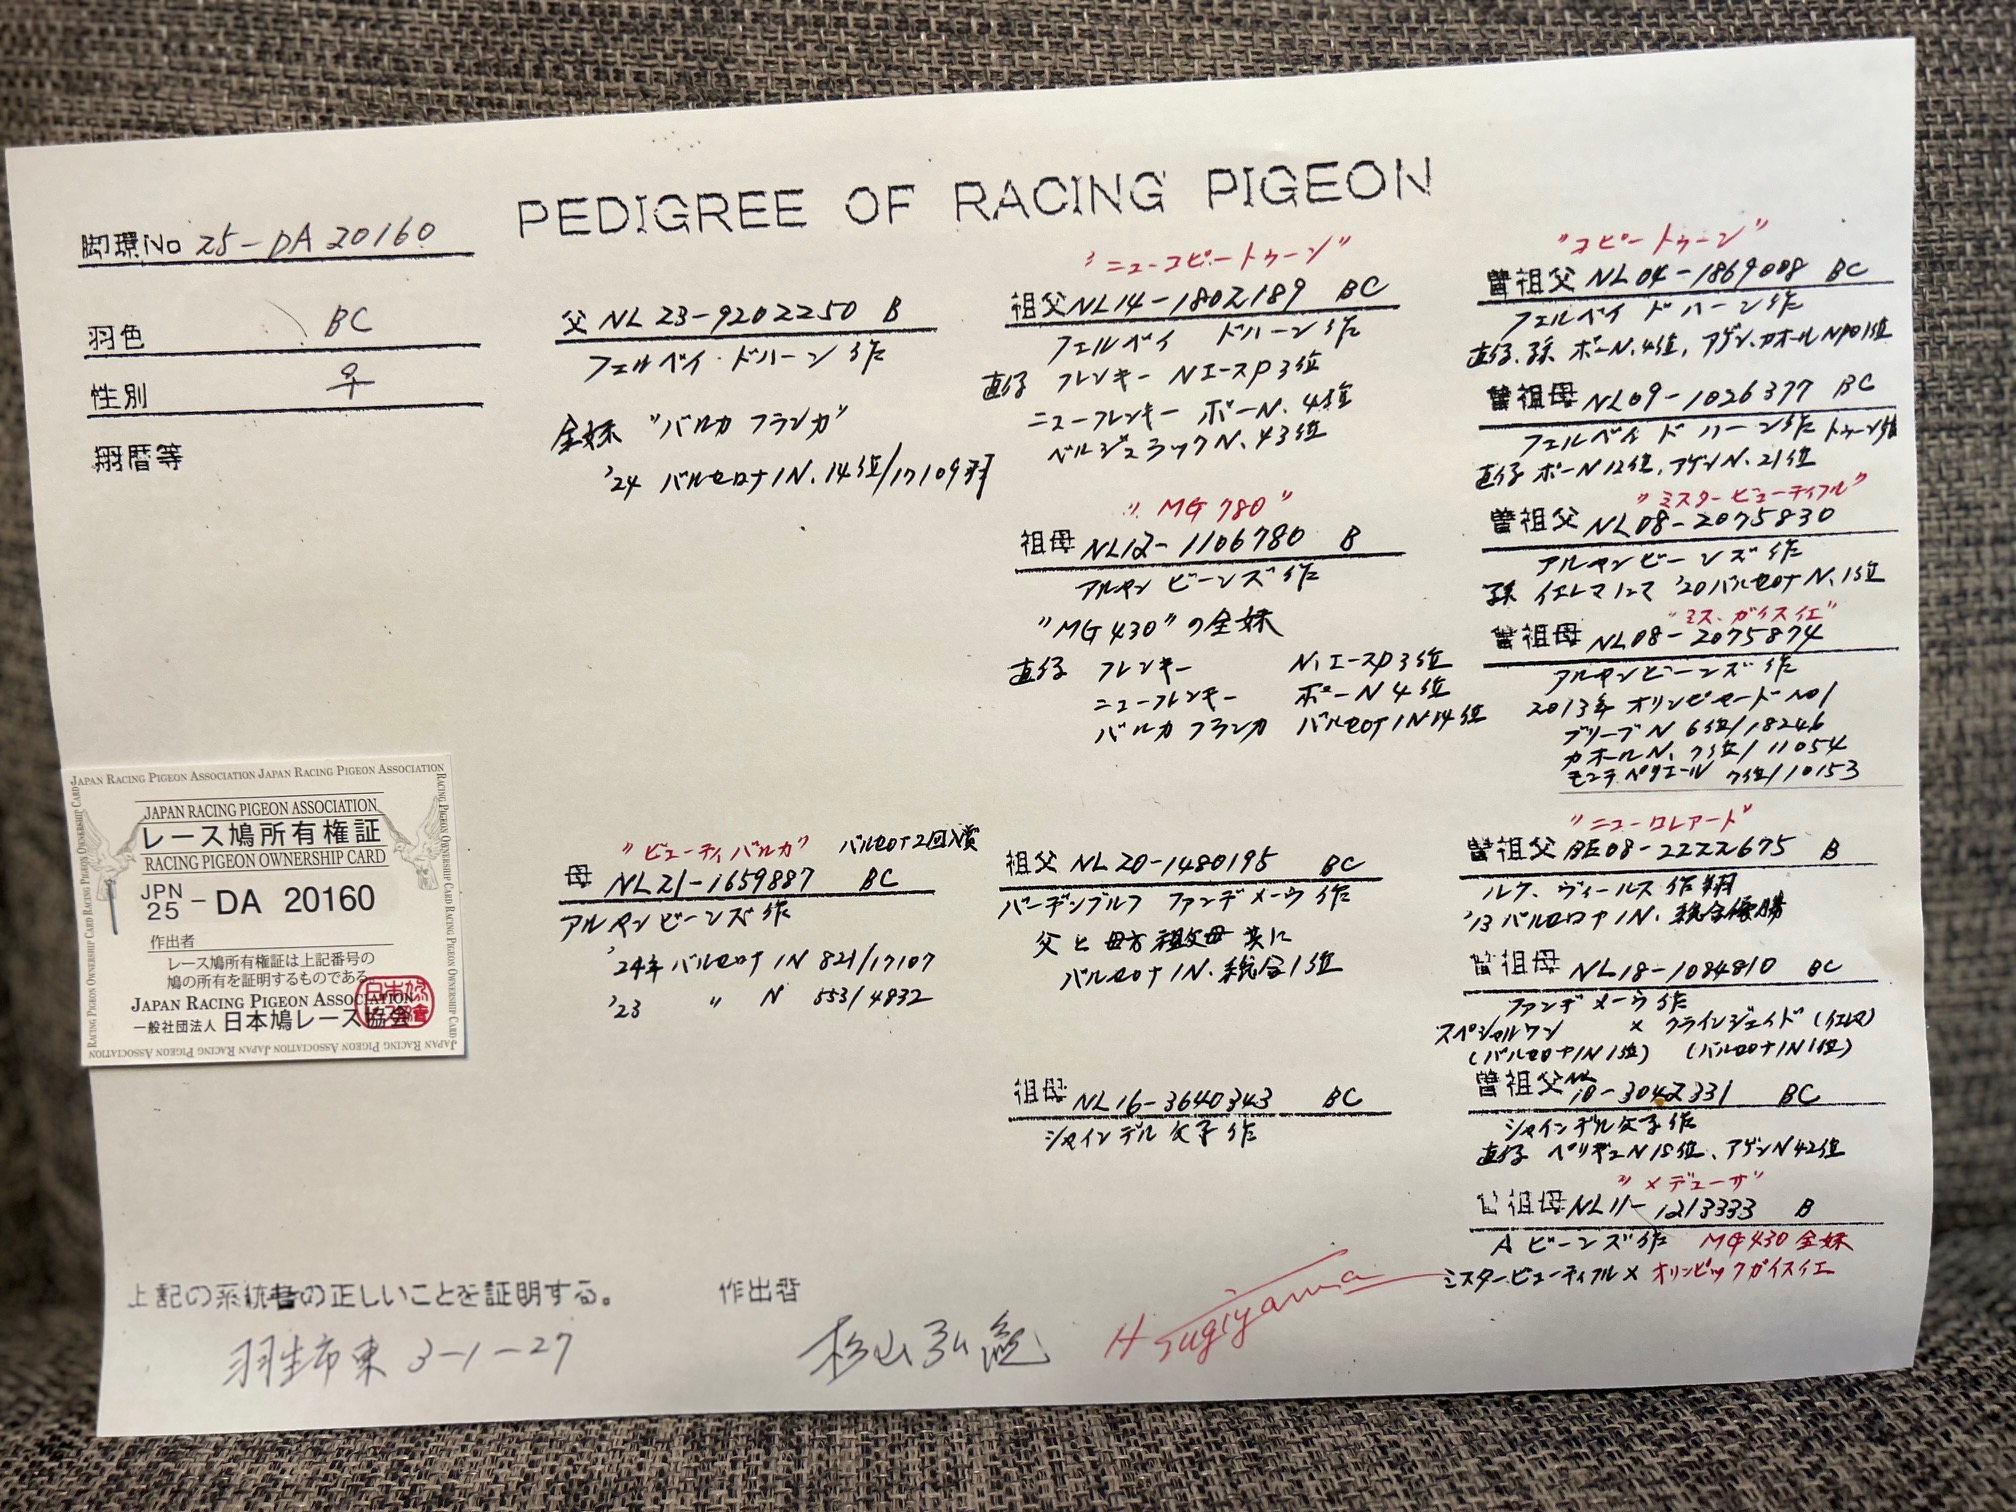 PEDIGREE OF RACING PIGEON
脚環No 25-DA 20160
羽色 BC
性別 ♀
翔暦等
父 NL 23-9202250 B
フェルベイ・ドハーン作
全妹 "バルカフランカ"
'24 バルセロナIN.14位/17109羽
"ビューティバルカ" バルセロナ2回入賞
母 NL21-1659887 BC
アルヤンビーンズ作
'24年バルセロナIN 821/17107
'23 〃 N 553/4832
"ニューコピートゥーン"
祖父 NL14-1802189 BC
フェルベイ ドハーン作
直仔 フレンキー NエースP3位
ニューフレンキー ポーN.4位
ベルジュラックN.43位
"MG780"
祖母 NL12-1106780 B
アルヤンビーンズ作
"MG430"の全妹
直仔 フレンキー N.エースP3位
ニューフレンキー ポーN4位
バルカフランカ バルセロナIN14位
祖父 NL20-1480195 BC
バーデンブルフ ファンデメーウ作
父と母方祖父母共に
バルセロナIN.総合1位
祖母 NL16-3640343 BC
シャインデル父子作
"コピートゥーン"
曽祖父 NL04-1869008 BC
フェルベイ ドハーン作
直仔.孫 ポーN.4位,アゲン.カオールNPO1位
曽祖母 NL09-1026377 BC
フェルベイ ドハーン作 トゥーン
直仔 ポーN12位,アゲンN.21位
"ミスタービューティフル"
曽祖父 NL08-2075830
アルヤンビーンズ作
孫 イエレマ '20バルセロナN.1位
"ミス.ガイスイエ"
曽祖母 NL08-2075874
アルヤンビーンズ作
2013年オリンピアード NO1
ブリーブN 6位/18246
カオールN.7位/11054
モンテペリエール 7位/10153
"ニューロレアード"
曽祖父 BE08-2222675 B
ルク.ヴィールス作翔
'13バルセロナIN.総合優勝
曽祖母 NL18-1084810 BC
ファンデメーウ作
スペシャルワン × クラインジェイド(イエレマ)
(バルセロナIN1位) (バルセロナIN1位)
曽祖父 NL10-3042331 BC
シャインデル父子作
直仔 ペリギューN15位、アゲンN42位
"メデューサ"
曽祖母 NL11-1213333 B
Aビーンズ作 MG430全妹
ミスタービューティフル×オリンピックガイスイエ
JAPAN RACING PIGEON ASSOCIATION JAPAN RACING PIGEON ASSOCIATION
RACING PIGEON OWNERSHIP CARD RACING PIGEON OWNERSHIP CARD
JAPAN RACING PIGEON ASSOCIATION
レース鳩所有権証
RACING PIGEON OWNERSHIP CARD
JPN
25 - DA 20160
作出者
レース鳩所有権証は上記番号の
鳩の所有を証明するものである
JAPAN RACING PIGEON ASSOCIATION
一般社団法人 日本鳩レース協会
JAPAN RACING PIGEON ASSOCIATION JAPAN RACING PIGEON ASSOCIATION
上記の系統書の正しいことを証明する。 作出者
羽生市東 3-1-27
杉山弘
H Sugiyama